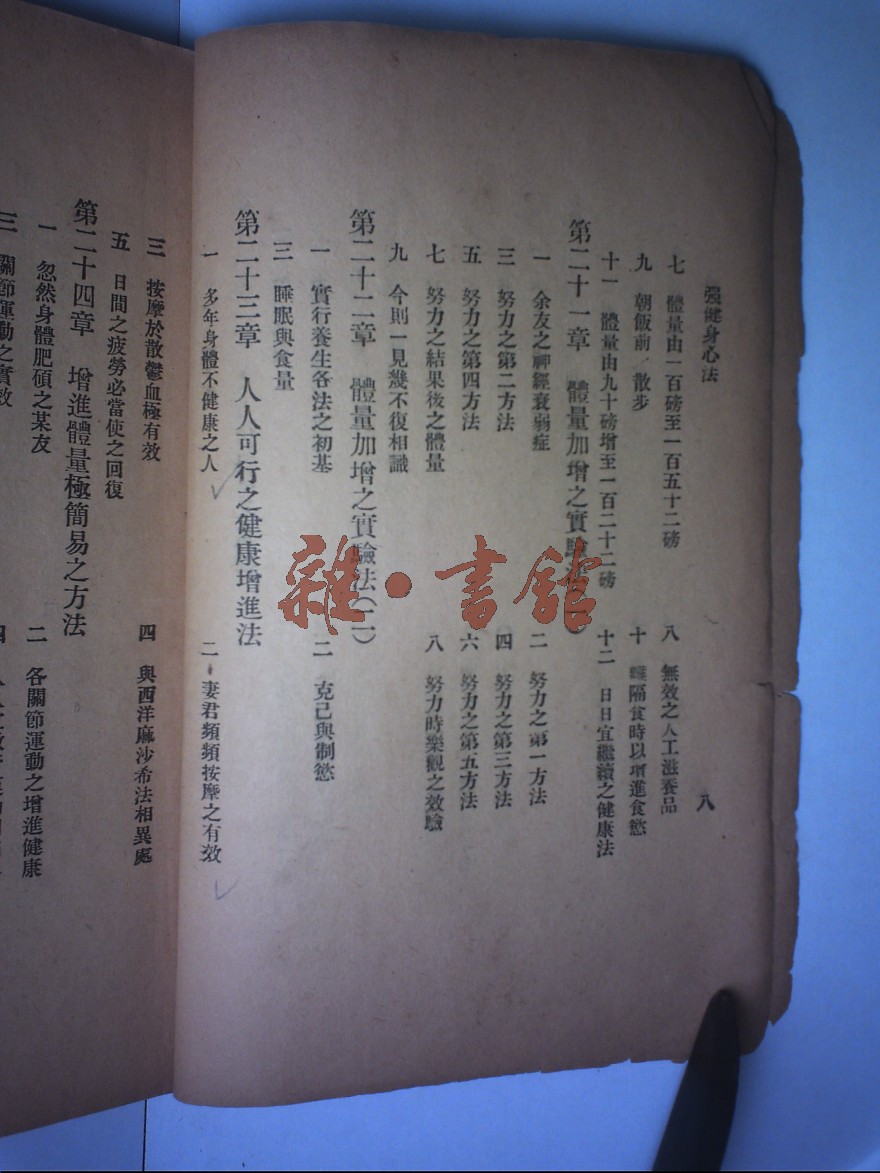 强健身心法
八
七 體量由一百磅至一百五十二磅
八 無效之人工滋養品
九 朝飯前之散步
十 隔食時以增進食慾
十一 體量由九十磅增至一百二十二磅
十二 日日宜繼續之健康法
第二十一章 體量加增之實驗法(一)
一 余友之神經衰弱症
二 努力之第一方法
三 努力之第二方法
四 努力之第三方法
五 努力之第四方法
六 努力之第五方法
七 努力之結果後之體量
八 努力時樂觀之效驗
九 今則一見幾不復相識
第二十二章 體量加增之實驗法(二)
一 實行養生各法之初基
二 克己與制慾
三 睡眠與食量
第二十三章 人人可行之健康增進法
一 多年身體不健康之人
二 妻君頻頻按摩之有效
三 按摩於散鬱血極有效
四 與西洋麻沙希法相異處
五 日間之疲勞必當使之回復
第二十四章 增進體量極簡易之方法
一 忽然身體肥碩之某友
二 各關節運動之增進健康
三 關節運動之實效
四
雜·書館